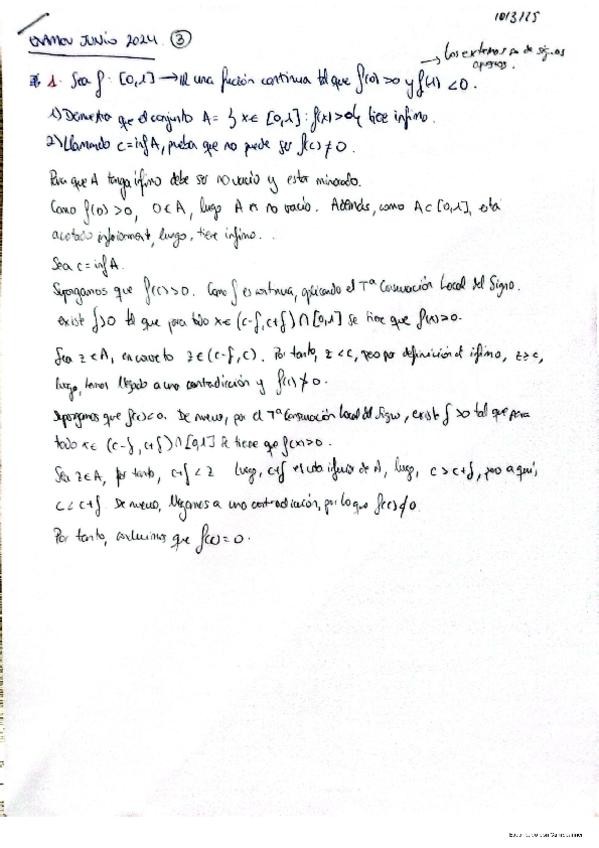 10/3/25
EXAMEN JUNIO 2024. (3)
→ Los extremos son de signos opuestos.
1. Sea f: [0,1] → ℝ una función continua tal que f(0)>0 y f(1)<0.
1) Demuestra que el conjunto A = { x ∈ [0,1] : f(x)>0 } tiene ínfimo.
2) Llamando c = inf A, prueba que no puede ser f(c) ≠ 0.
Para que A tenga ínfimo debe ser no vacío y estar minorado.
Como f(0)>0, 0∈A, luego A es no vacío. Además, como A⊂[0,1], está
acotado inferiorment, luego, tiene ínfimo.
Sea c = inf A.
Supongamos que f(c)>0. Como f es continua, aplicando el Tª Conservación Local del Signo.
existe δ>0 tal que para todo x∈(c-δ, c+δ)∩[0,1] se tiene que f(x)>0.
Sea z∈A, en concreto z∈(c-δ, c). Por tanto, z<c, pero por definición de ínfimo, z≥c,
luego, hemos llegado a una contradicción y f(c)≯0.
Supongamos que f(c)<0. De nuevo, por el Tª Conservación Local del Signo, existe δ>0 tal que para
todo x∈(c-δ, c+δ)∩[0,1] se tiene que f(x)>0.
Sea z∈A, por tanto, c+δ<z luego, c+δ es cota inferior de A, luego, c>c+δ, pero aquí,
c<c+δ. De nuevo, llegamos a una contradicción, por lo que f(c)≮0.
Por tanto, concluimos que f(c)=0.